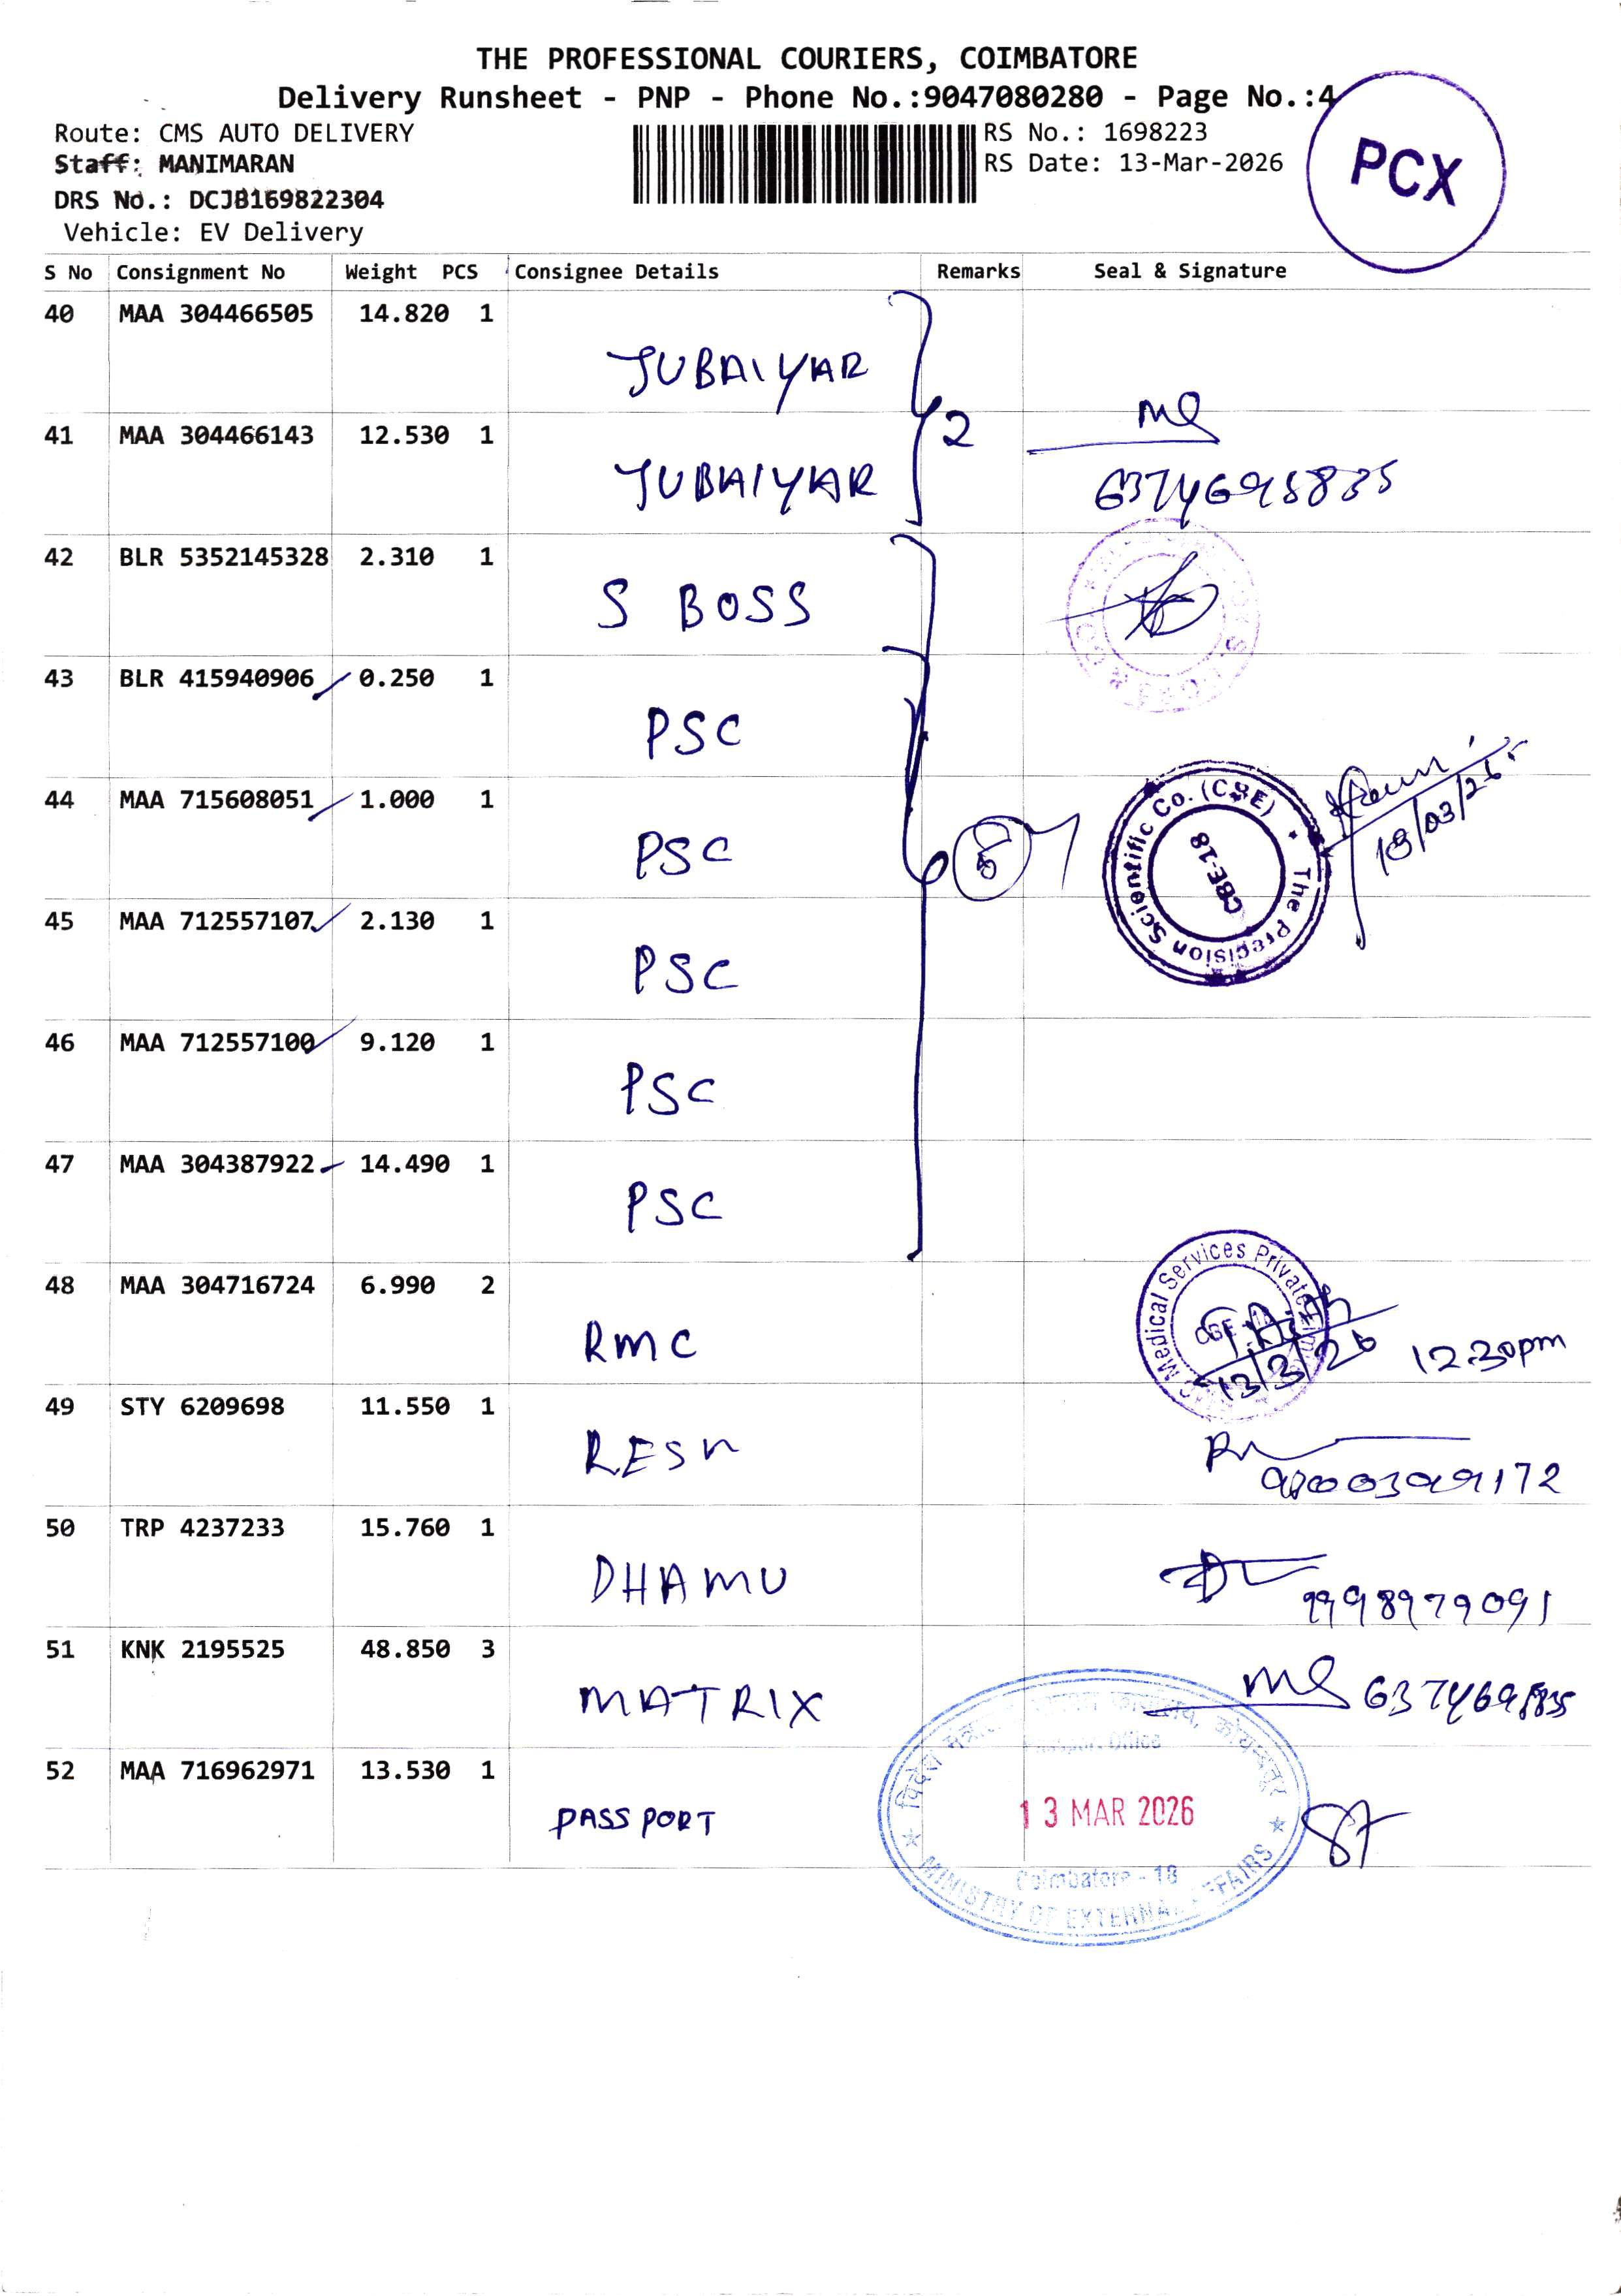 THE PROFESSIONAL COURIERS, COIMBATORE
Delivery Runsheet - PNP - Phone No.:9047080280 - Page No.:4
Route: CMS AUTO DELIVERY
RS No.: 1698223
Staff: MANIMARAN
RS Date: 13-Mar-2026
DRS No.: DCJB169822304
Vehicle: EV Delivery
PCX
S No Consignment No Weight PCS Consignee Details Remarks Seal & Signature
40 MAA 304466505 14.820 1
JUBAIYAR
2
41 MAA 304466143 12.530 1
JUBAIYAR
42 BLR 5352145328 2.310 1
S BOSS
43 BLR 415940906 0.250 1
PSC
44 MAA 715608051 1.000 1
PSC
The Precision Scientific Co. (CBE)
CBE-18
13/03/26
45 MAA 712557107 2.130 1
PSC
46 MAA 712557100 9.120 1
PSC
47 MAA 304387922 14.490 1
PSC
48 MAA 304716724 6.990 2
RMC
Medical Services Private
13/3/26
12.30pm
49 STY 6209698 11.550 1
RESN
50 TRP 4237233 15.760 1
DHAMU
51 KNK 2195525 48.850 3
MATRIX
52 MAA 716962971 13.530 1
PASSPORT
13 MAR 2026
Coimbatore - 18
MINISTRY OF EXTERNAL AFFAIRS